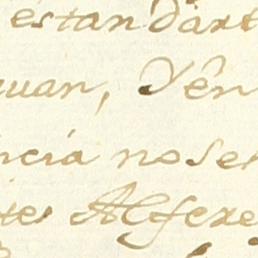 estandarte
quan, Yên
ncia no se
tes Alfere